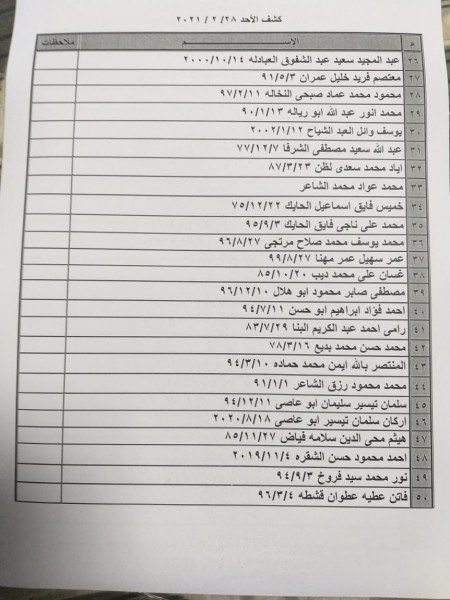 كشف الأحد ٢٨/ ٢ / ٢٠٢١
م الإســـــــم ملاحظات
٢٦ عبد المجيد سعيد عبد الشفوق العبادله ٢٠٠٠/١٠/١٤
٢٧ معتصم فريد خليل عمران ٩١/٥/٣
٢٨ محمود محمد عماد صبحى النخاله ٩٧/٢/١١
٢٩ محمد انور عبد الله ابو رياله ٩٠/١/١٣
٣٠ يوسف وائل العبد الشياح ٢٠٠٢/١/١٢
٣١ عبد الله سعيد مصطفى الشرفا ٧٧/١٢/٧
٣٢ اياد محمد سعدى لظن ٨٧/٣/٢٣
٣٣ محمد عواد محمد الشاعر
٣٤ خميس فايق اسماعيل الحايك ٧٥/١٢/٢٢
٣٥ محمد على ناجى فايق الحايك ٩٥/٩/٣
٣٦ محمد يوسف محمد صلاح مرتجى ٩٦/٨/٢٧
٣٧ عمر سهيل عمر مهنا ٩٩/٨/٢٧
٣٨ غسان على محمد ديب ٨٥/١٠/٢٠
٣٩ مصطفى صابر محمود ابو هلال ٩٦/١٢/١٠
٤٠ احمد فؤاد ابراهيم ابو حسن ٩٤/٧/١١
٤١ رامى احمد عبد الكريم البنا ٨٣/٧/٢٩
٤٢ محمد حسن محمد بديع ٧٨/٣/١٦
٤٣ المنتصر بالله ايمن محمد حماده ٩٤/٣/١٠
٤٤ محمد محمود رزق الشاعر ٩١/١/١
٤٥ سلمان تيسير سليمان ابو عاصى ٩٤/١٢/١١
٤٦ اركان سلمان تيسير ابو عاصى ٢٠٢٠/٨/١٨
٤٧ هيثم محى الدين سلامه فياض ٨٥/١١/٢٧
٤٨ احمد محمود حسن الشقره ٢٠١٩/١١/٤
٤٩ نور محمد سيد فروخ ٩٤/٩/٣
٥٠ فاتن عطيه عطوان قشطه ٩٦/٣/٤